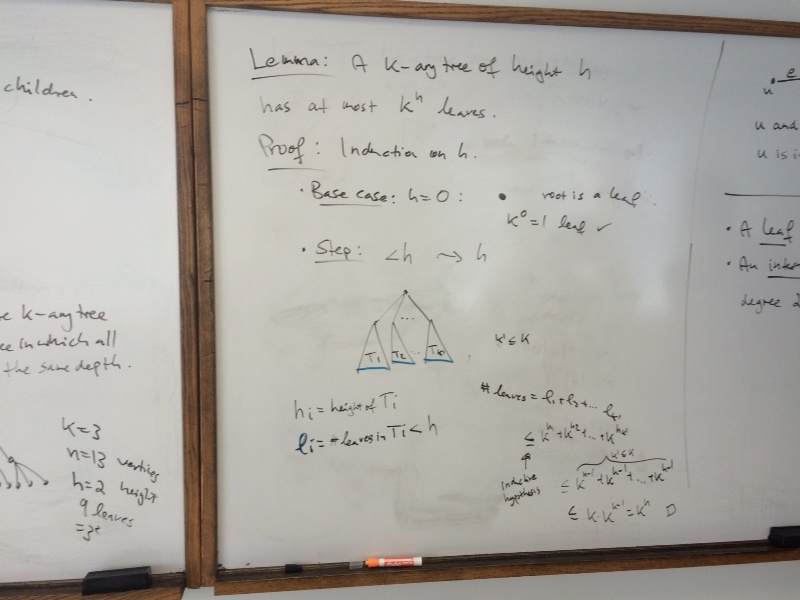 children.
e k-ary tree
ee in which all
the same depth.
k=3
n=13 vertices
h=2 height
9 leaves
Lemma: A k-ary tree of height h
has at most k^h leaves.
Proof: Induction on h.
• Base case: h=0: • root is a leaf
k^0=1 leaf ✓
• Step: <h ⤳ h
...
T1 T2 ... Tk'
k'≤k
hi = height of Ti
li = # leaves in Ti < h
# leaves = l1+l2+... lk'
≤ k^h1+k^h2+...+k^hk'
inductive
hypothesis
k'≤k
≤ k^h-1+k^h-1+...+k^h-1
≤ k·k^h-1=k^h □
e
u
u and
u is i
• A leaf
• An intern
degree